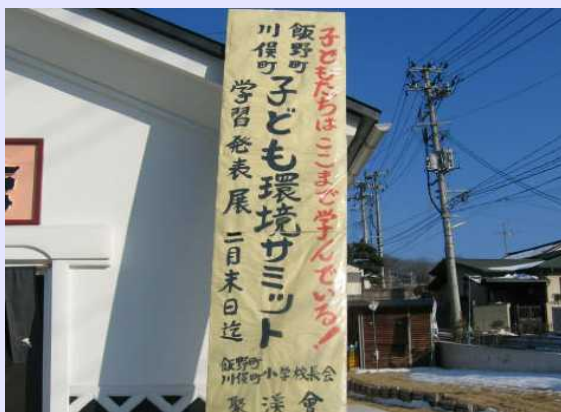 子どもたちはここまで学んでいる!
飯野町
川俣町
子ども環境サミット
学習発表展 二月末日迄
飯野町
川俣町
小学校長会
聚渓會